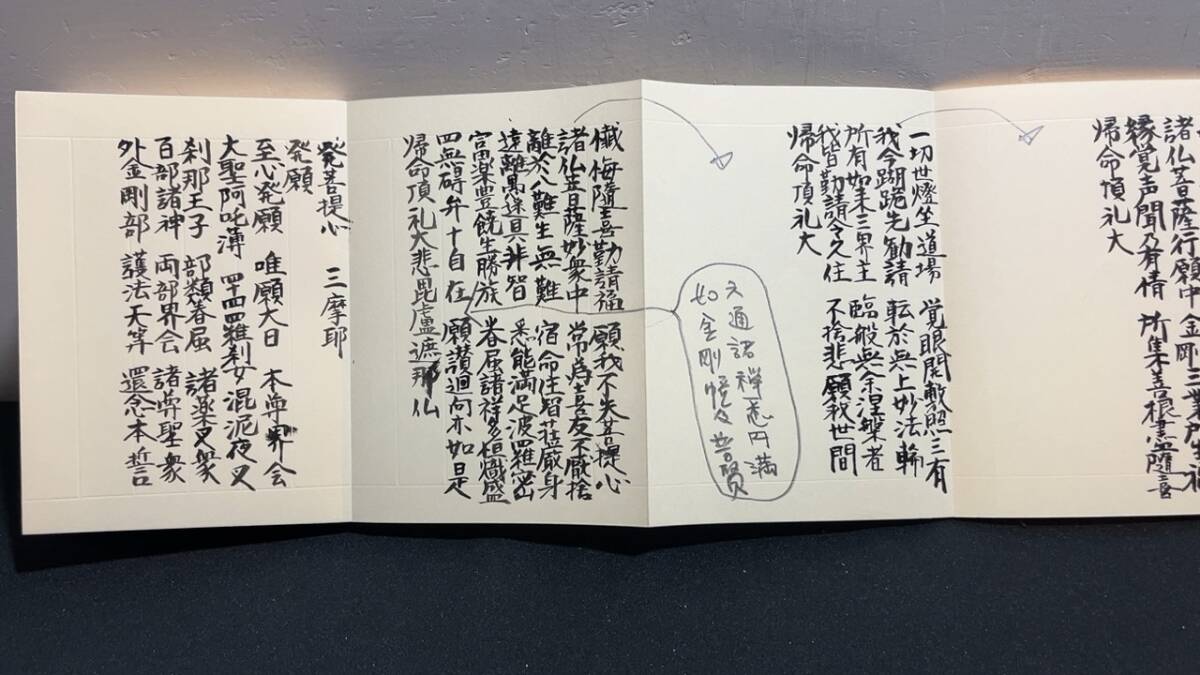 諸仏菩薩行願中 金剛三業所生福
縁覚声聞及有情 所集善根尽隨喜
帰命頂礼大
一切世燈坐道場 覚眼開敷照三有
我今胡跪先勧請 転於無上妙法輪
所有如来三界主 臨般無余涅槃者
我皆勤請令久住 不捨悲願救世間
帰命頂礼大
通諸禅悉円満
如金剛幢及普賢
懺悔隨喜勤請福 願我不失菩提心
諸仏菩薩妙衆中 常為善友不厭捨
離於八難生無難 宿命住智荘厳身
遠離愚迷具非智 悉能満足波羅密
富楽豊饒生勝族 眷属諸 多恒熾盛
四無碍弁十自在 願讃廻向亦如是
帰命頂礼大悲毘盧遮那仏
発菩提心 三摩耶
発願
至心発願 唯願大日 本尊界会
大聖阿吒薄 四四羅刹女 混泥夜叉
刹那王子 部類眷属 諸薬叉衆
百部諸神 両部界会 諸尊聖衆
外金剛部 護法天等 還念本誓